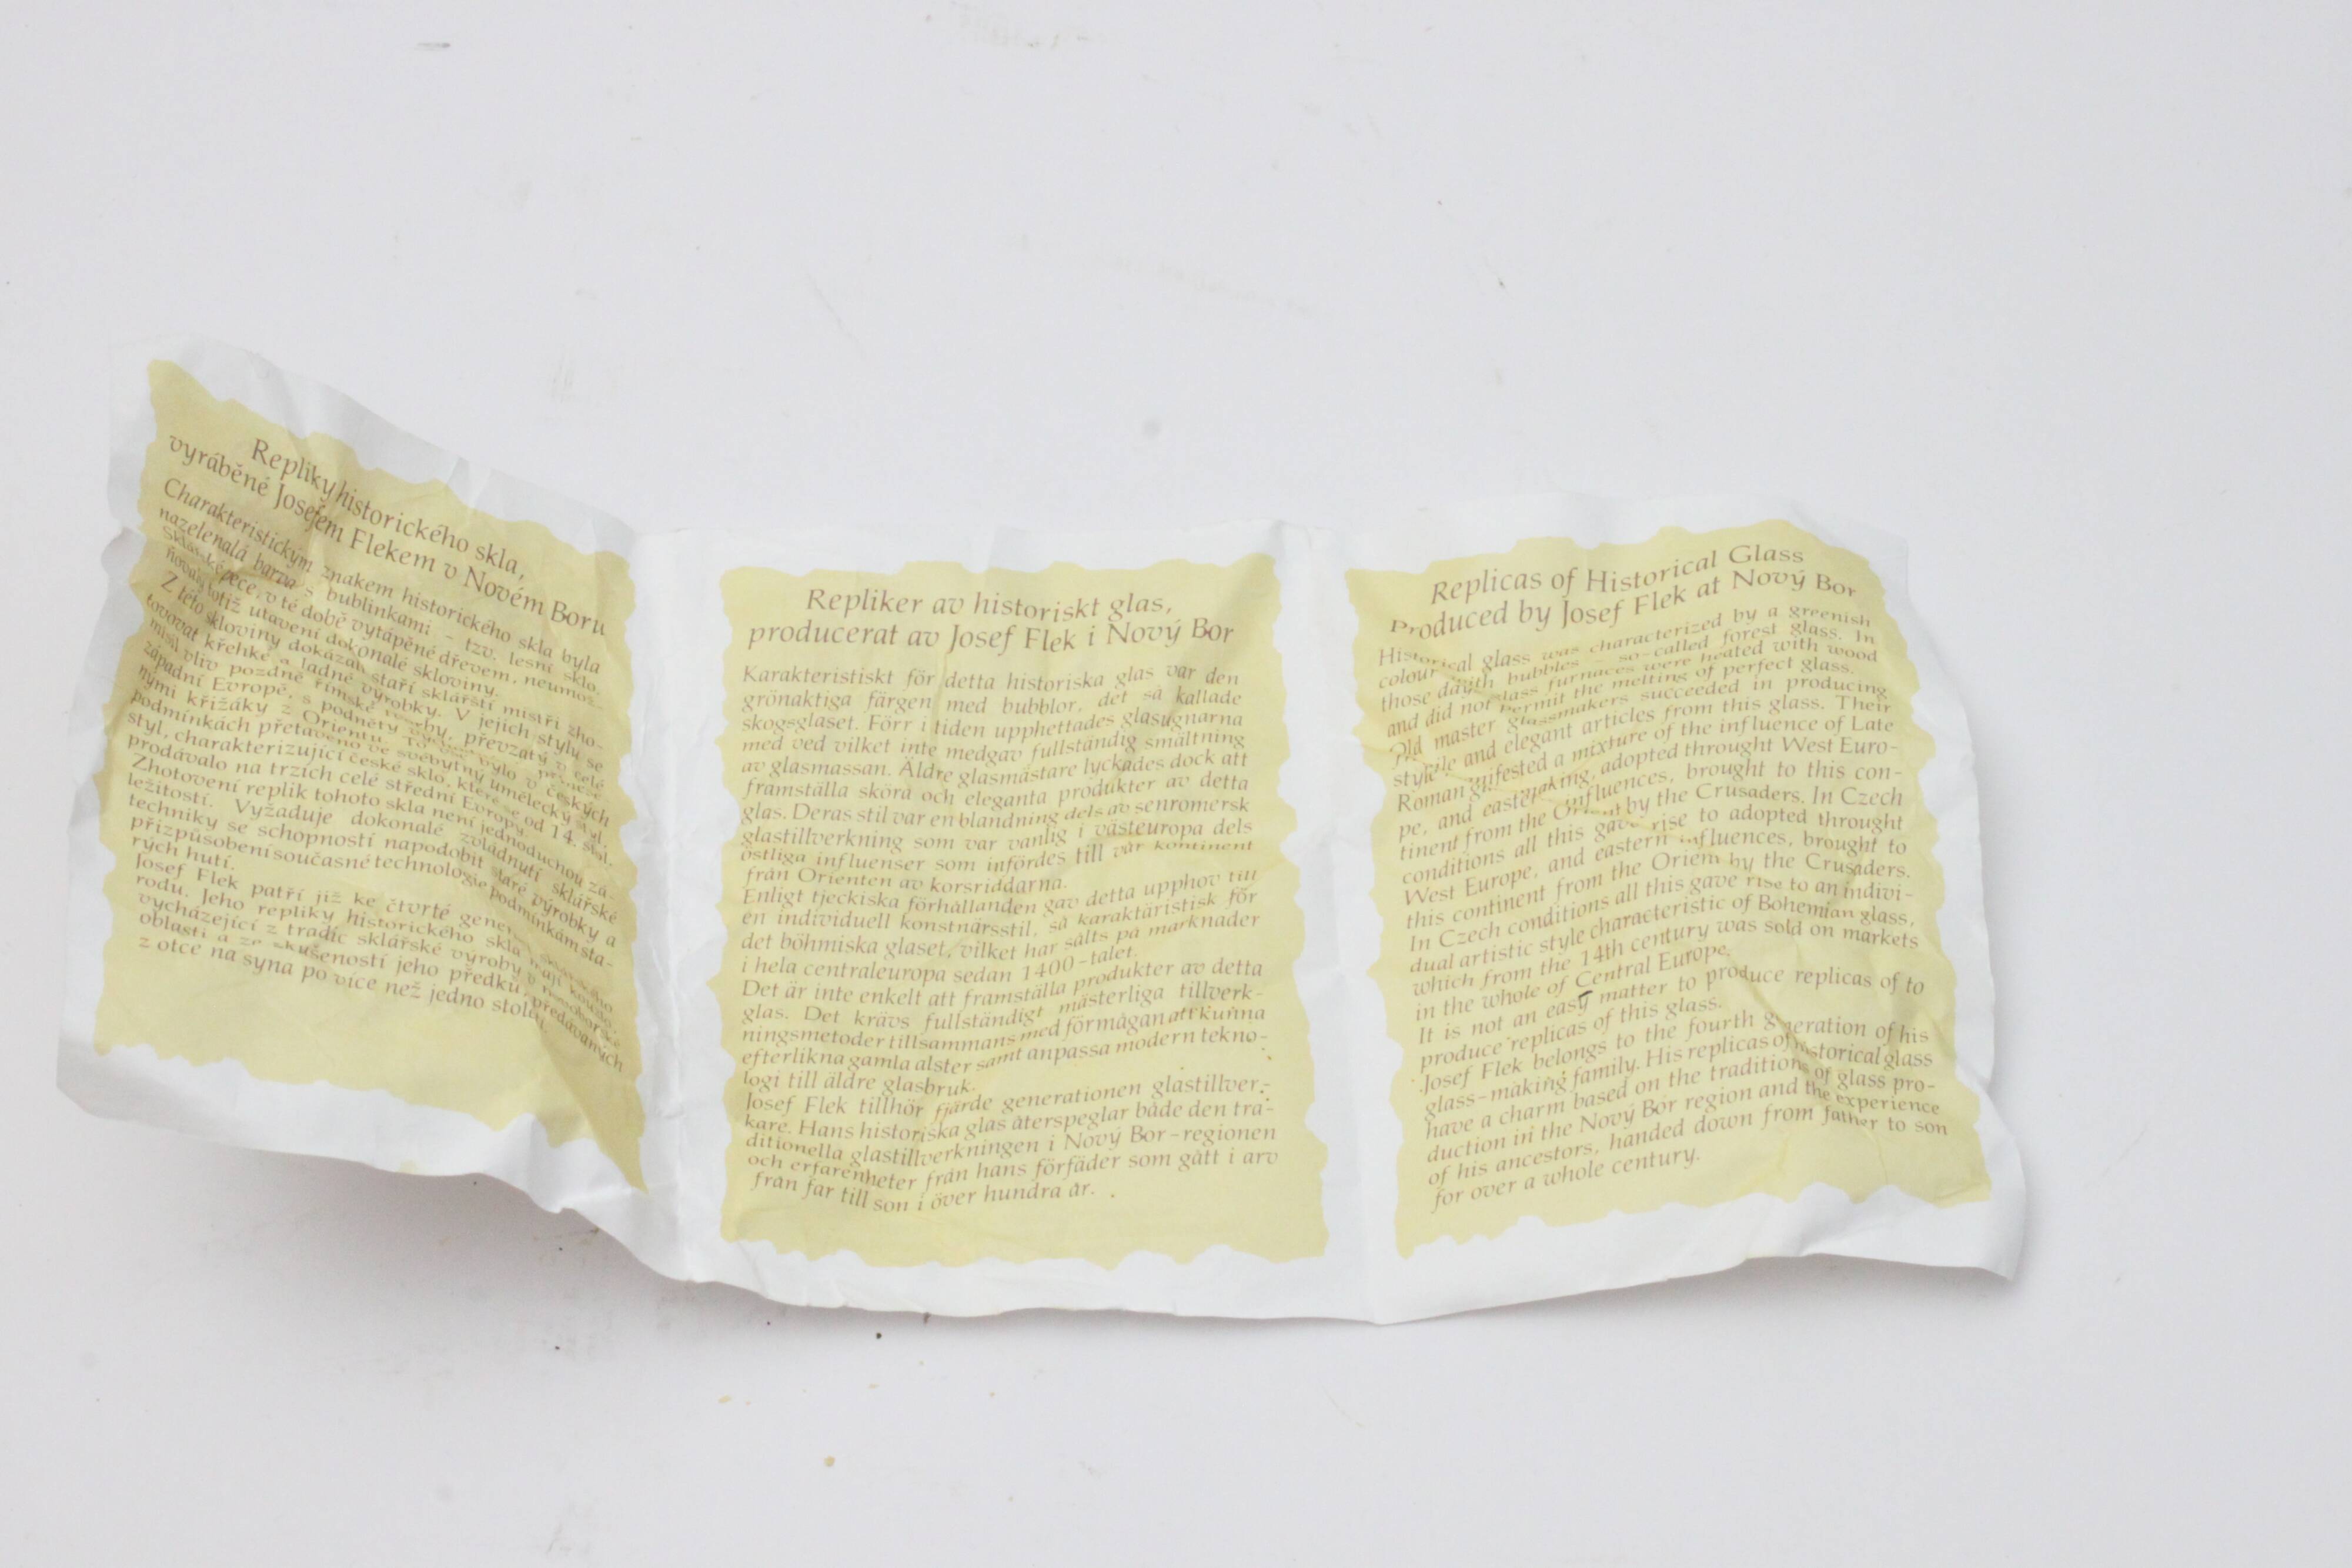 Repliky historického skla,
vyráběné Josefem Flekem v Novém Boru
Charakteristickým znakem historického skla byla
nazelenalá barva s bublinkami – tzv. lesní sklo.
Sklářské pece, v té době vytápěné dřevem, neumož-
totiž utavení dokonalé skloviny.
Z této skloviny dokázali staří sklářští mistři zho-
tovovat křehké a ladné výrobky. V jejich stylu se
mísil vliv pozdně římské převzatý v celé
západní Evropě, s podněty
nými křižáky z Orientu. To bylo v českých
podmínkách přetaveno ve svébytný umělecký styl,
styl, charakterizující české sklo, které se od 14. stol.
prodávalo na trzích celé střední Evropy.
Zhotovení replik tohoto skla není jednoduchou zá-
ležitostí. Vyžaduje dokonalé zvládnutí sklářské
techniky se schopností napodobit staré výrobky a
přizpůsobení současné technologie podmínkám sta-
rých hutí.
Josef Flek patří již ke čtvrté
rodu. Jeho repliky historického skla mají kouzlo,
vycházející z tradic sklářské výroby v
oblasti a ze zkušeností jeho předků, předávaných
z otce na syna po více než jedno století.
Repliker av historiskt glas,
producerat av Josef Flek i Nový Bor
Karakteristiskt för detta historiska glas var den
grönaktiga färgen med bubblor, det så kallade
skogsglaset. Förr i tiden upphettades glasugnarna
med ved vilket inte medgav fullständig smältning
av glasmassan. Äldre glasmästare lyckades dock att
framställa sköra och eleganta produkter av detta
glas. Deras stil var en blandning dels av senromersk
glastillverkning som var vanlig i västeuropa dels
östliga influenser som infördes till vår kontinent
från Orienten av korsriddarna.
Enligt tjeckiska förhållanden gav detta upphov till
en individuell konstnärsstil, så karaktäristisk för
det böhmiska glaset, vilket har sålts på marknader
i hela centraleuropa sedan 1400-talet.
Det är inte enkelt att framställa produkter av detta
glas. Det krävs fullständigt mästerliga tillverk-
ningsmetoder tillsammans med förmågan att kunna
efterlikna gamla alster samt anpassa modern tekno-
logi till äldre glasbruk.
Josef Flek tillhör fjärde generationen glastillver-
kare. Hans historiska glas återspeglar både den tra-
ditionella glastillverkningen i Nový Bor-regionen
och erfarenheter från hans förfäder som gått i arv
från far till son i över hundra år.
Replicas of Historical Glass
Produced by Josef Flek at Nový Bor
Historical glass was characterized by a greenish
colour with bubbles – so-called forest glass. In
those days glass furnaces were heated with wood
and did not permit the melting of perfect glass.
Old master glassmakers succeeded in producing
and elegant articles from this glass. Their
style manifested a mixture of the influence of Late
Roman adopted throught West Euro-
pe, and eastern influences, brought to this con-
tinent from the Orient by the Crusaders. In Czech
conditions all this gave rise to adopted throught
West Europe, and eastern influences, brought to
this continent from the Orient by the Crusaders.
In Czech conditions all this gave rise to an indivi-
dual artistic style characteristic of Bohemian glass,
which from the 14th century was sold on markets
in the whole of Central Europe.
It is not an easy matter to produce replicas of to
produce replicas of this glass.
Josef Flek belongs to the fourth generation of his
glass-making family. His replicas of historical glass
have a charm based on the traditions of glass pro-
duction in the Nový Bor region and the experience
of his ancestors, handed down from father to son
for over a whole century.